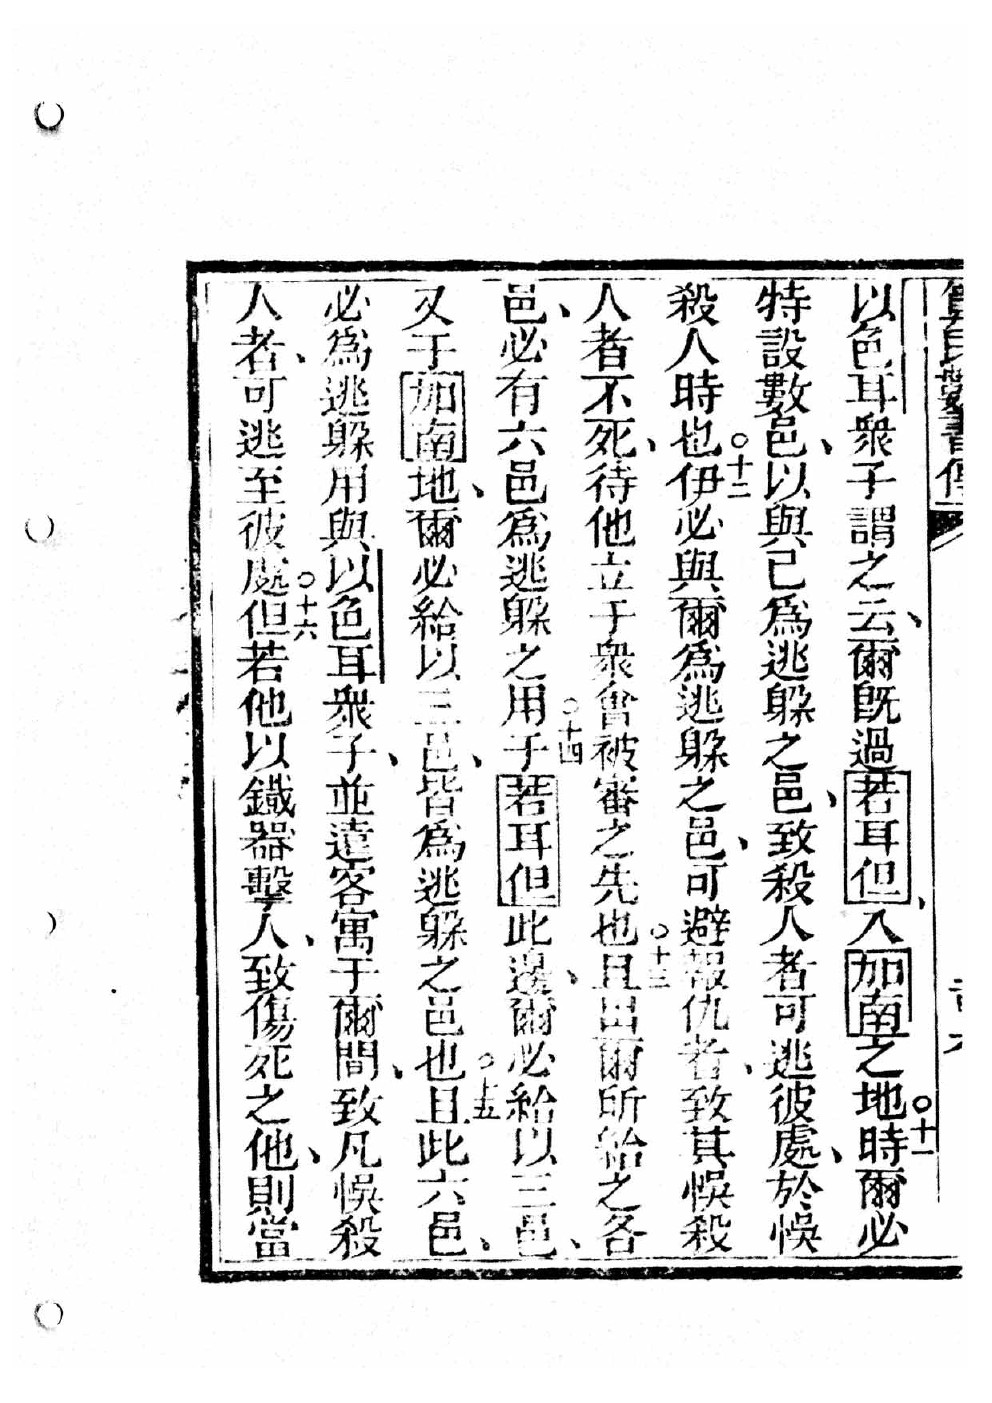 以色耳衆子謂之云、爾既過若耳但、入加南之地時○十一爾必
特設數邑、以與己爲逃躱之邑、致殺人者可逃彼處、於悞
殺人時也○十二伊必與爾爲逃躱之邑、可避報仇者、致其悞殺
人者不死、待他立于衆會被審之先也○十三且出爾所給之各
邑、必有六邑爲逃躱之用○十四于若耳但此邊、爾必給以三邑、
又于加南地、爾必給以三邑、皆爲逃躱之邑也○十五且此六邑、
必爲逃躱用與以色耳衆子、並遠客寓于爾間、致凡悞殺
人者、可逃至彼處○十六但若他以鐵器擊人、致傷死之、他則當